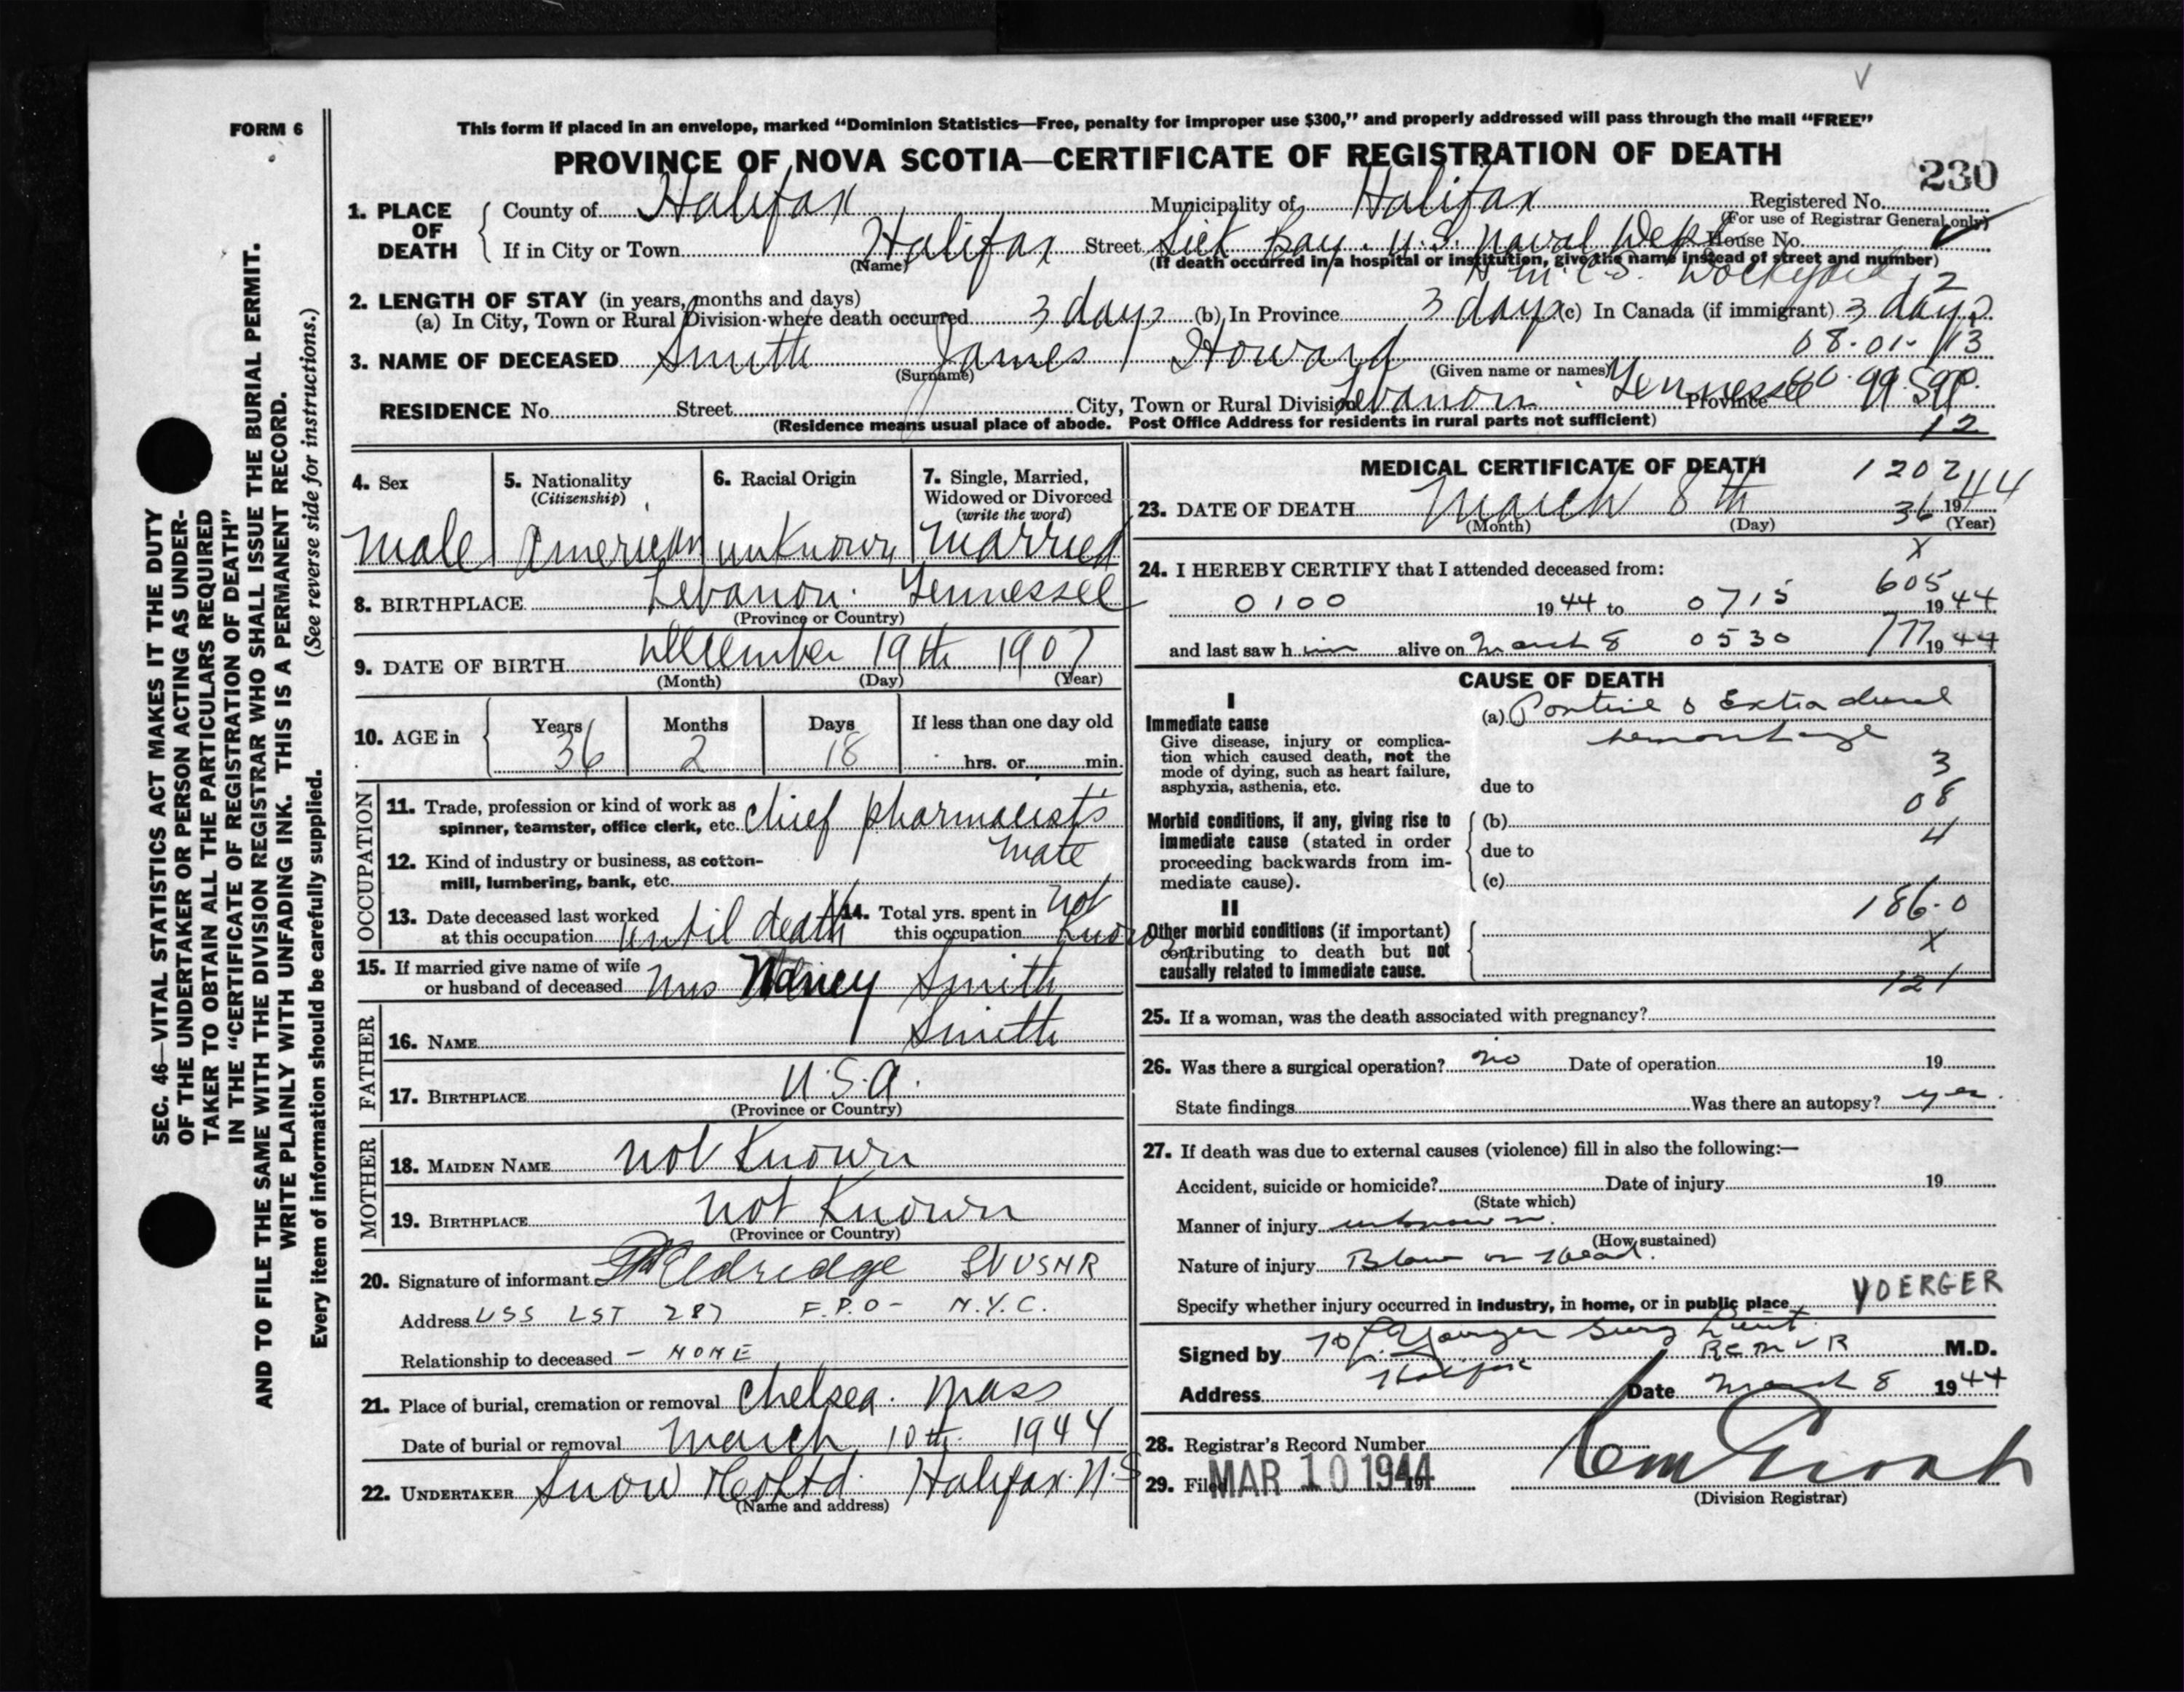 FORM 6
This form if placed in an envelope, marked “Dominion Statistics—Free, penalty for improper use $300,” and properly addressed will pass through the mail “FREE”
PROVINCE OF NOVA SCOTIA—CERTIFICATE OF REGISTRATION OF DEATH
230
SEC. 46—VITAL STATISTICS ACT MAKES IT THE DUTY
OF THE UNDERTAKER OR PERSON ACTING AS UNDER-
TAKER TO OBTAIN ALL THE PARTICULARS REQUIRED
IN THE “CERTIFICATE OF REGISTRATION OF DEATH”
AND TO FILE THE SAME WITH THE DIVISION REGISTRAR WHO SHALL ISSUE THE BURIAL PERMIT.
WRITE PLAINLY WITH UNFADING INK. THIS IS A PERMANENT RECORD.
Every item of information should be carefully supplied. (See reverse side for instructions.)
1. PLACE OF DEATH
County of Halifax Municipality of Halifax Registered No.
(For use of Registrar General only)
If in City or Town Halifax Street Sick Bay. U.S. Naval Dept House No.
(Name) (If death occurred in a hospital or institution, give the name instead of street and number)
H.M.C.S. Dockyard 12
2. LENGTH OF STAY (in years, months and days)
(a) In City, Town or Rural Division where death occurred 3 days (b) In Province 3 days (c) In Canada (if immigrant) 3 days
08-01-113
3. NAME OF DECEASED Smith James Howard
(Surname) (Given name or names)
RESIDENCE No. Street City, Town or Rural Division Lebanon Tennessee Province 99
(Residence means usual place of abode. Post Office Address for residents in rural parts not sufficient)
12
4. Sex
5. Nationality (Citizenship)
6. Racial Origin
7. Single, Married, Widowed or Divorced (write the word)
Male American unknown Married
8. BIRTHPLACE Lebanon. Tennessee
(Province or Country)
9. DATE OF BIRTH December 19th 1907
(Month) (Day) (Year)
10. AGE in Years 36 Months 2 Days 18 If less than one day old
hrs. or min.
OCCUPATION
11. Trade, profession or kind of work as
spinner, teamster, office clerk, etc. Chief pharmacist's
mate
12. Kind of industry or business, as cotton-
mill, lumbering, bank, etc.
13. Date deceased last worked
at this occupation until death
14. Total yrs. spent in
this occupation not known
15. If married give name of wife
or husband of deceased Mrs Nancy Smith
FATHER
16. NAME Smith
17. BIRTHPLACE U.S.A.
(Province or Country)
MOTHER
18. MAIDEN NAME not known
19. BIRTHPLACE not known
(Province or Country)
20. Signature of informant Eldredge USNR
Address USS LST 287 F.P.O - N.Y.C.
Relationship to deceased - NONE
21. Place of burial, cremation or removal Chelsea. Mass
Date of burial or removal March 10th 1944
22. UNDERTAKER Snow & Co Ltd. Halifax. N.S
(Name and address)
MEDICAL CERTIFICATE OF DEATH
1202
23. DATE OF DEATH March 8th 1944
(Month) (Day) (Year)
36
x
24. I HEREBY CERTIFY that I attended deceased from:
605
0100 1944 to 0715 1944
777
and last saw h im alive on March 8 0530 1944
CAUSE OF DEATH
I
Immediate cause
Give disease, injury or complica-
tion which caused death, not the
mode of dying, such as heart failure,
asphyxia, asthenia, etc.
(a) Pontine & Extradural
hemorrhage
3
due to
08
Morbid conditions, if any, giving rise to
immediate cause (stated in order
proceeding backwards from im-
mediate cause).
(b)
4
due to
(c)
186-0
II
Other morbid conditions (if important)
contributing to death but not
causally related to immediate cause.
x
121
25. If a woman, was the death associated with pregnancy?
26. Was there a surgical operation? no Date of operation 19
State findings Was there an autopsy? yes.
27. If death was due to external causes (violence) fill in also the following:—
Accident, suicide or homicide? Date of injury 19
(State which)
Manner of injury unknown.
(How sustained)
Nature of injury Blow on Head.
Specify whether injury occurred in industry, in home, or in public place
YOERGER
Signed by Yoerger Surg Lieut. RCNVR M.D.
Address Halifax Date March 8 1944
28. Registrar's Record Number
29. Filed MAR 10 1944 19
(Division Registrar)